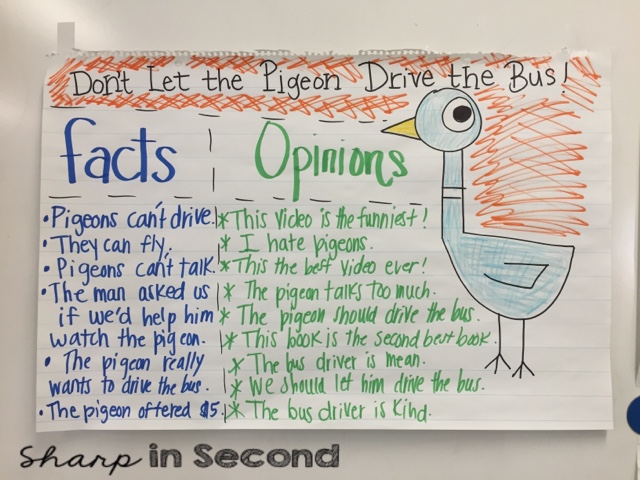 Don't Let the Pigeon Drive the Bus!
Facts
• Pigeons can't drive.
• They can fly.
• Pigeons can't talk.
• The man asked us
if we'd help him
watch the pigeon.
• The pigeon really
wants to drive the bus.
• The pigeon offered $5.
Opinions
* This video is the funniest!
* I hate pigeons.
* This the best video ever!
* The pigeon talks too much.
* The pigeon should drive the bus.
* This book is the second best book.
* The bus driver is mean.
* We should let him drive the bus.
* The bus driver is kind.
Sharp in Second